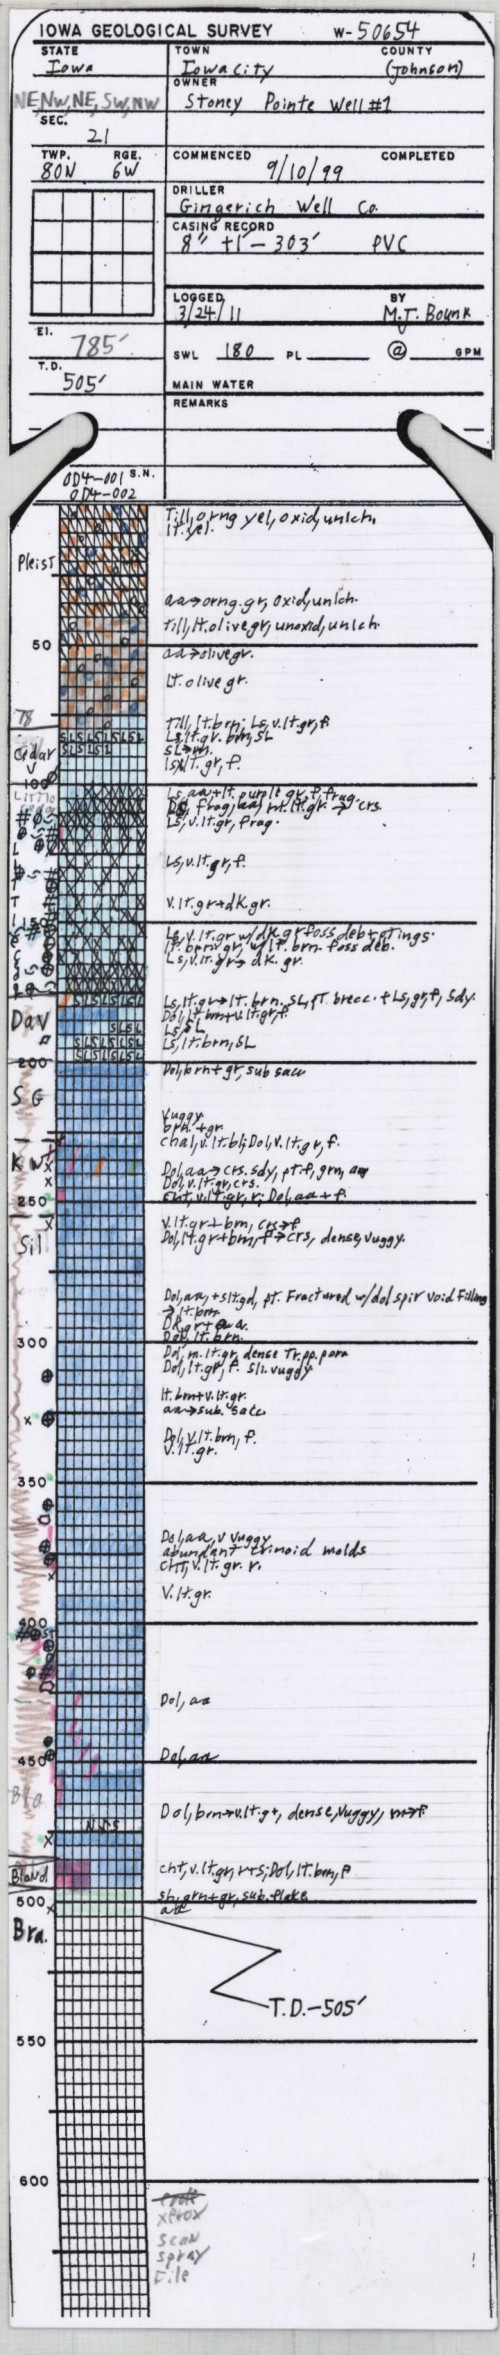 IOWA GEOLOGICAL SURVEY W-50654
STATE TOWN COUNTY
Iowa Iowa City (Johnson)
OWNER
NE, NW, NE, SW, NW Stoney Pointe Well #1
SEC.
21
TWP. RGE. COMMENCED COMPLETED
80N 6W 9/10/99
DRILLER
Gingerich Well Co.
CASING RECORD
8" +1'-303' PVC
LOGGED BY
3/24/11 M.J. Bounk
El.
785'
SWL 180 PL @ GPM
T.D.
505'
MAIN WATER
REMARKS
0D4-001 S.N.
0D4-002
Till, orng yel, oxid, unlch.
lt. yel.
Pleist
aa→orng.gr, oxid, unlch.
Till, lt. olive gr, unoxid, unlch.
50
aa→olive gr.
Lt. olive gr.
78
Till, lt. brn; Ls, v. lt. gr, f.
Ls, lt. gr. brn, SL
SLSLSLSLSL
SLSLSL
Cedar
100
Ls, v. lt. gr, frag.
Ls, v. lt. gr, f.
v. lt. gr + dk. gr.
150
Ls, v. lt. gr w/ dk. gr foss deb + stings.
lt. brn gr, w/ lt. brn foss deb.
Ls, v. lt. gr → dk. gr.
SLSLSLSL
Ls, lt. gr → lt. brn. SL, pt. brecc. + Ls, gr, f, Sdy.
Dol, lt brn + v. lt. gr, f.
Dav
SLSL
Ls, SL
SLSLSLSL
Ls, lt. brn, SL
SLSLSLSL
200
Dol, brn + gr, sub sacc
S G
Vuggy
brn + gr
chal, v. lt. bl; Dol, v. lt. gr, f.
K w
Dol, aa → crs. sdy, pt. f, grn, aa
Dol, v. lt. gr, crs.
Cht, v. lt. gr, r; Dol, aa + f.
250
v. lt. gr + brn, crs → f
Dol, lt. gr + brn, f → crs, dense, vuggy.
Sil
Dol, aa, + slt. gd, pt. Fractured w/ dol spir void filling
→ lt. brn
Dk. gr + aa.
Dol, lt. brn.
300
Dol, m. lt. gr, dense Tr. pp. pora
Dol, lt. gr, f. sli. vuggy
lt. brn + v. lt. gr.
aa → sub. sacc
Dol, v. lt. brn, f.
v. lt. gr.
350
Dol, aa, v vuggy
abundant crinoid molds
cht, v. lt. gr. r.
V. lt. gr.
400
Dol, aa
450
Dol, aa
Bla
Dol, brn → v. lt. gr, dense, vuggy, m → f
NSS
Bland.
cht, v. lt. gr, r + s; Dol, lt. brn, f
sh, grn + gr, sub. flake
500
aa
Bra.
T.D.-505'
550
600
xerox
scan
spray
File